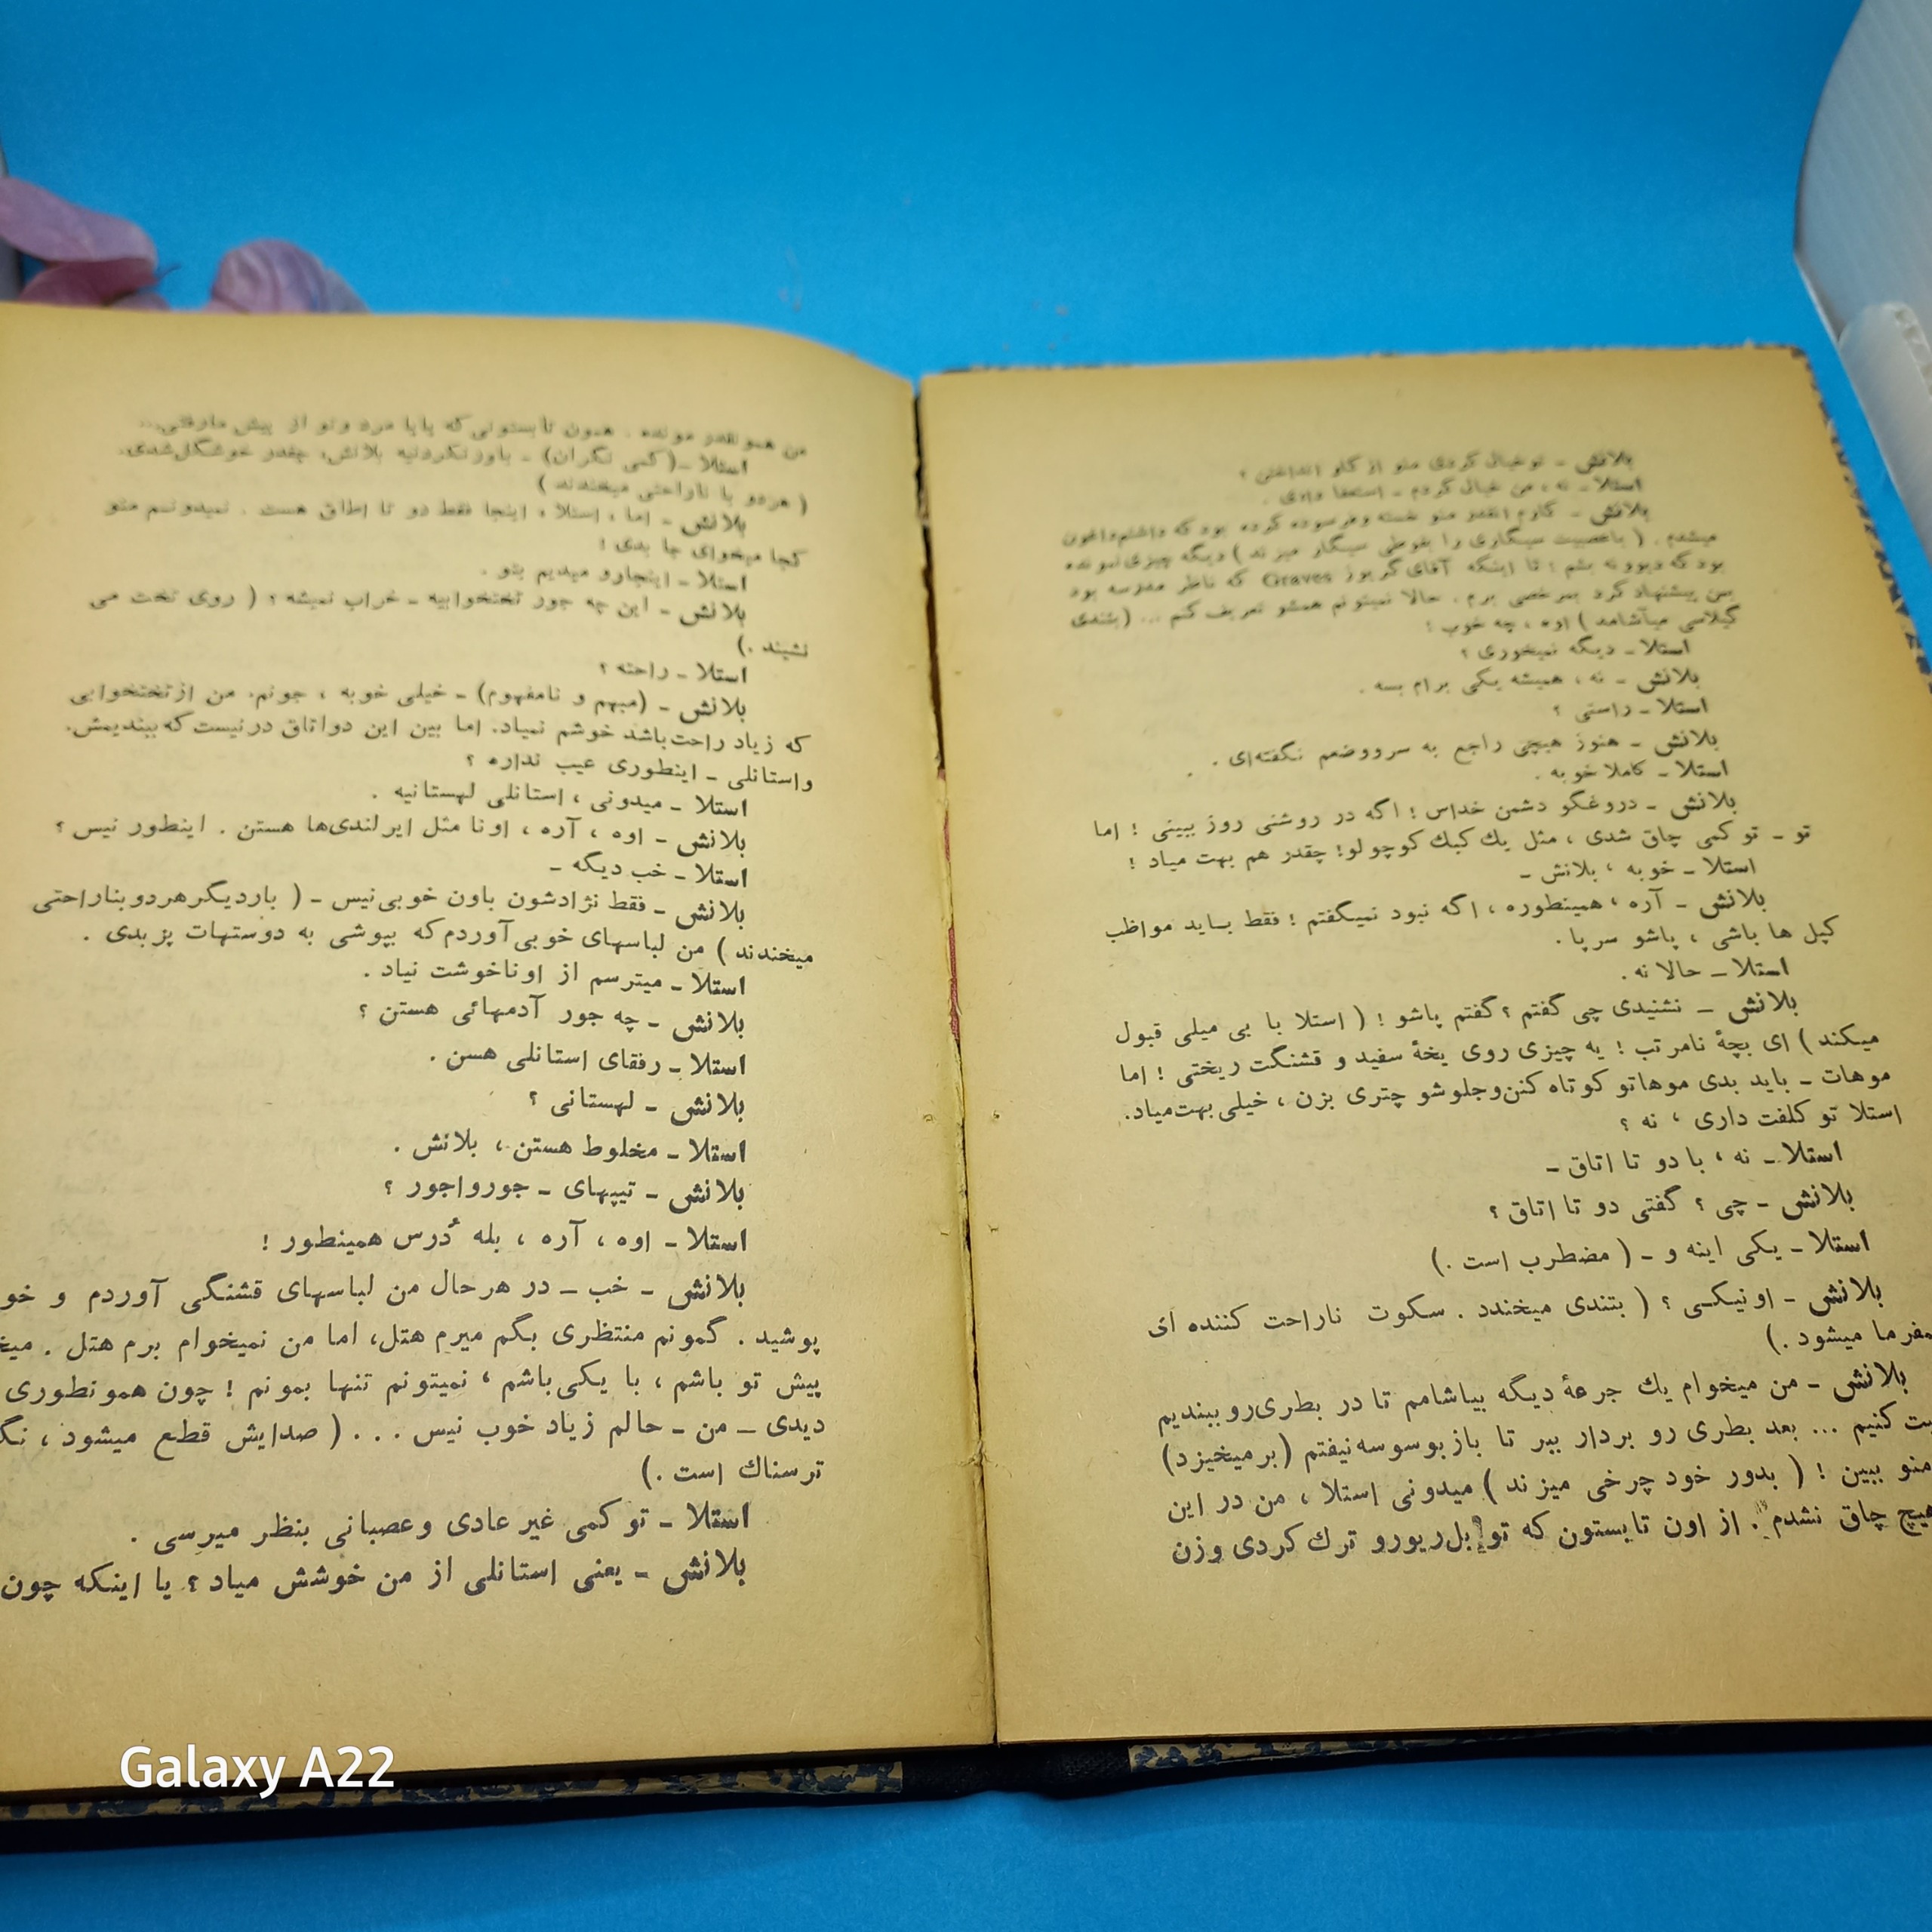 بلانش - تو خیال کردی منو از کلو انداختی ؟
استلا - نه ، من خیال کردم - استعفا دادی .
بلانش - کارم انقدر منو خسته و فرسوده کرده بود که داشتم داغون
میشدم . ( با عصبیت سیگاری را بقوطی سیگار میزند ) دیگه چیزی نمونده
بود که دیوونه بشم ! تا اینکه آقای گریوز Graves که ناظر مدرسه بود
بمن پیشنهاد کرد بمرخصی برم . حالا نمیتونم همشو تعریف کنم ... (بتندی
گیلاسی میآشامد ) اوه ، چه خوب !
استلا - دیگه نمیخوری ؟
بلانش - نه ، همیشه یکی برام بسه .
استلا - راستی ؟
بلانش - هنوز هیچی راجع به سرووضعم نگفته‌ای .
استلا - کاملا خوبه .
بلانش - دروغگو دشمن خداس ! اگه در روشنی روز ببینی ! اما
تو - تو کمی چاق شدی ، مثل یك کبك کوچولو! چقدر هم بهت میاد !
استلا - خوبه ، بلانش -
بلانش - آره ، همینطوره ، اگه نبود نمیگفتم ! فقط بـاید مواظب
کپل ها باشی ، پاشو سرپا .
استلا - حالا نه .
بلانش - نشنیدی چی گفتم ؟ گفتم پاشو ! ( استلا با بی میلی قبول
میکند ) ای بچهٔ نامرتب ! یه چیزی روی یخهٔ سفید و قشنگت ریختی ! اما
موهات - باید بدی موهاتو کوتاه کنن و جلوشو چتری بزن ، خیلی بهت میاد.
استلا تو کلفت داری ، نه ؟
استلا - نه ، با دو تا اتاق -
بلانش - چی ؟ گفتی دو تا اتاق ؟
استلا - یکی اینه و - ( مضطرب است .)
بلانش - اونیکـی ؟ ( بتندی میخندد . سکوت ناراحت کننده ای
حکمفرما میشود .)
بلانش - من میخوام یك جرعهٔ دیگه بیاشامم تا در بطری‌رو ببندیم
کنیم ... بعد بطری رو بردار ببر تا باز بوسوسه نیفتم (برمیخیزد)
منو ببین ! ( بدور خود چرخی میزند ) میدونی استلا ، من در این
هیچ چاق نشدم . از اون تابستون که تو بل‌ریورو ترك کردی وزن
من همونقدر مونده . همون تابستونی که پاپا مرد و تو از پیش مارفتی...
استلا -(کمی نگران) - باور نکردنیه بلانش، چقدر خوشگل شدی.
( هردو با ناراحتی میخندند )
بلانش - اما ، استلا ، اینجا فقط دو تا اطاق هست . نمیدونم منو
کجا میخوای جا بدی !
استلا - اینجارو میدیم بتو .
بلانش - این چه جور تختخوابیه - خراب نمیشه ؟ ( روی تخت می
نشیند .)
استلا - راحته ؟
بلانش - (مبهم و نامفهوم) - خیلی خوبه ، جونم. من از تختخوابی
که زیاد راحت باشد خوشم نمیاد. اما بین این دواتاق در نیست که ببندیمش.
واستانلی - اینطوری عیب نداره ؟
استلا - میدونی ، استانلی لهستانیه .
بلانش - اوه ، آره ، اونا مثل ایرلندی‌ها هستن . اینطور نیس ؟
استلا - خب دیگه -
بلانش - فقط نژادشون باون خوبی نیس - ( باردیگر هردو بناراحتی
میخندند ) من لباسهای خوبی آوردم که بپوشی به دوستهات پز بدی .
استلا - میترسم از اونا خوشت نیاد .
بلانش - چه جور آدمهائی هستن ؟
استلا - رفقای استانلی هسن .
بلانش - لهستانی ؟
استلا - مخلوط هستن ، بلانش .
بلانش - تیپهای - جورواجور ؟
استلا - اوه ، آره ، بله دُرس همینطور !
بلانش - خب - در هرحال من لباسهای قشنگی آوردم و
پوشید . گمونم منتظری بگم میرم هتل، اما من نمیخوام برم هتل .
پیش تو باشم ، با یکی باشم ، نمیتونم تنها بمونم ! چون همونطوری
دیدی - من - حالم زیاد خوب نیس . . . ( صدایش قطع میشود ،
ترسناك است .)
استلا - تو کمی غیر عادی و عصبانی بنظر میرسی .
بلانش - یعنی استانلی از من خوشش میاد ؟ یا اینکه چون
Galaxy A22